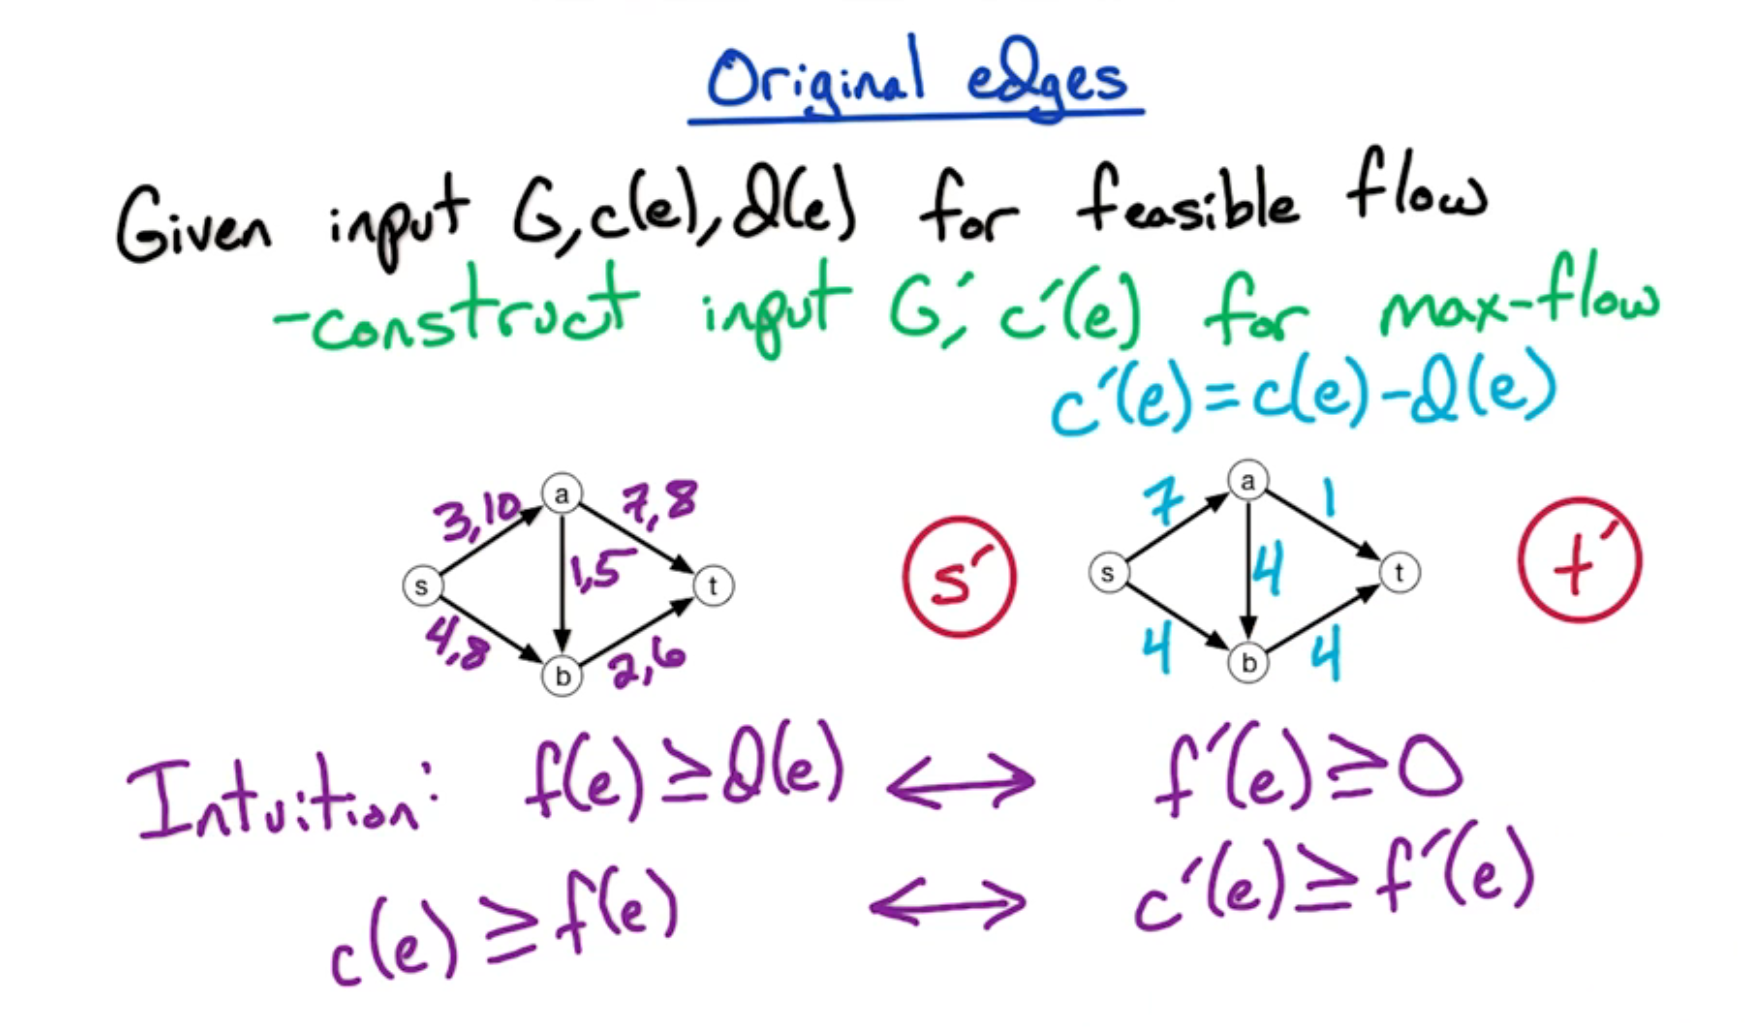 Original edges
Given input G, c(e), d(e) for feasible flow
-construct input G', c'(e) for max-flow
c'(e)=c(e)-d(e)
3,10 a 7,8
s 1,5 t
4,8 b 2,6
s'
7 a 1
s 4 t
4 b 4
t'
Intuition: f(e)≥d(e) ↔ f'(e)≥0
c(e)≥f(e) ↔ c'(e)≥f'(e)